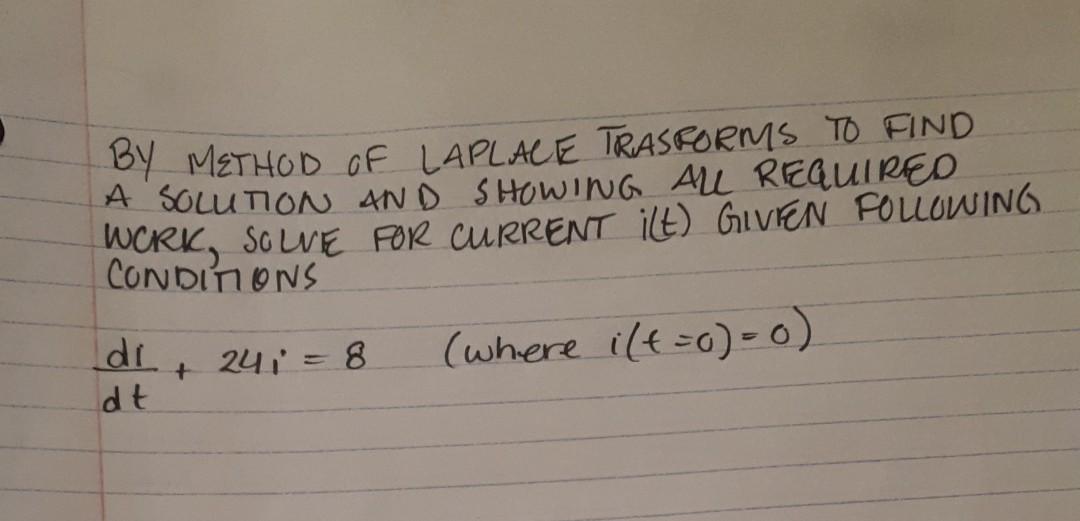 BY METHOD OF LAPLACE TRASFORMS TO FIND
A SOLUTION AND SHOWING ALL REQUIRED
WORK, SOLVE FOR CURRENT i(t) GIVEN FOLLOWING
CONDITIONS
di/dt + 24i = 8 (where i(t=0)=0)